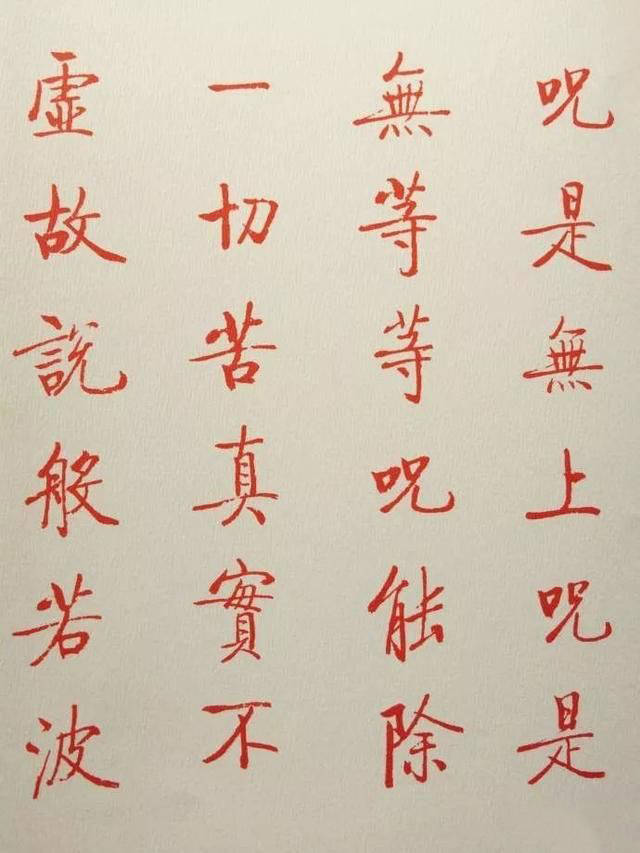 咒是無上咒是
無等等咒能除
一切苦真實不
虛故說般若波